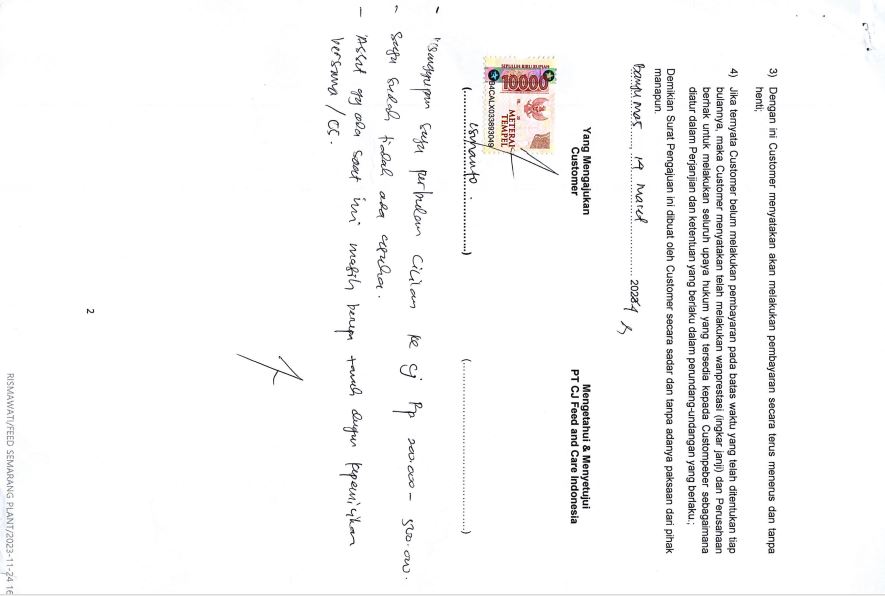 3) Dengan ini Customer menyatakan akan melakukan pembayaran secara terus menerus dan tanpa
henti;
4) Jika ternyata Customer belum melakukan pembayaran pada batas waktu yang telah ditentukan tiap
bulannya, maka Customer menyatakan telah melakukan wanprestasi (ingkar janji) dan Perusahaan
berhak untuk melakukan seluruh upaya hukum yang tersedia kepada Custompeber sebagaimana
diatur dalam Perjanjian dan ketentuan yang berlaku dalam perundang-undangan yang berlaku.;
Demikian Surat Pengajuan ini dibuat oleh Customer secara sadar dan tanpa adanya paksaan dari pihak
manapun.
Banyumas, 19 Maret 2024
Yang Mengajukan
Customer
Mengetahui & Menyetujui
PT CJ Feed and Care Indonesia
10000
METERAI
TEMPEL
B4CALX033893049
(....................................................)
(....................................................)
- Kesanggupan saya perbulan Cicilan ke CJ Rp 200.000 - 500.000.
- Saya sudah tidak ada usaha.
- Asset yg ada saat ini masih berupa tanah dengan kepemilikan
bersama /
2
RISMAWATI/FEED SEMARANG PLANT/2023-11-24 16